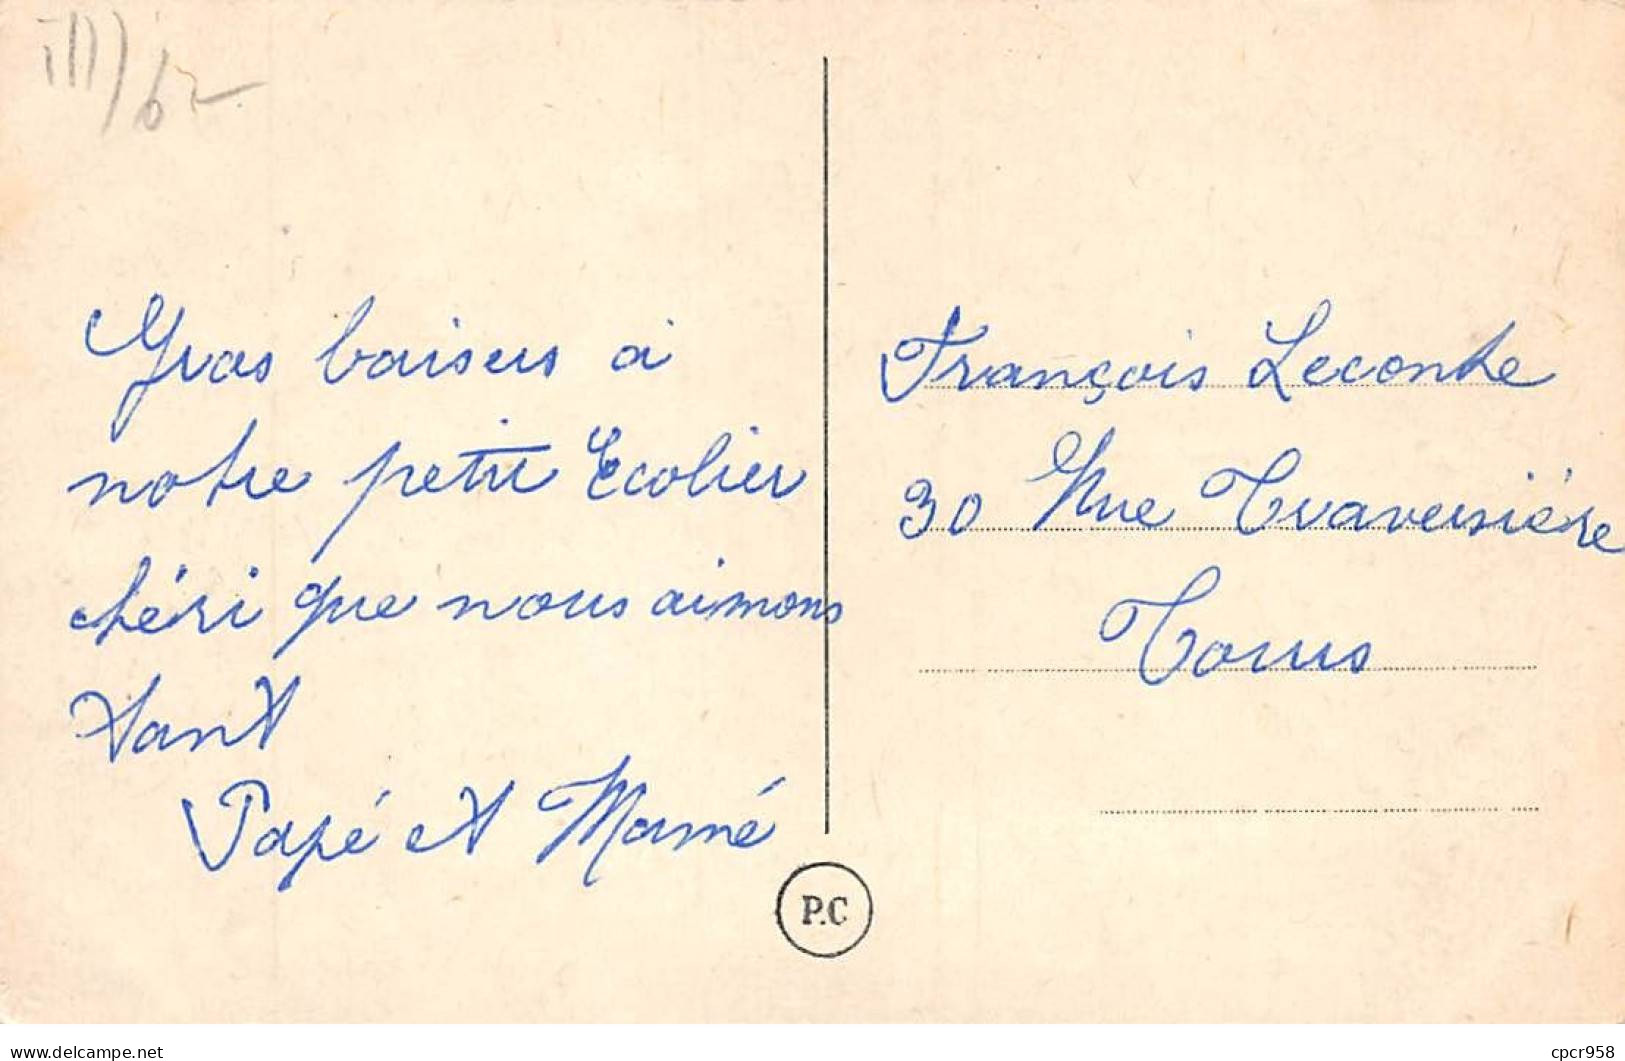 Gros baisers à
notre petit Ecolier
chéri que nous aimons
tant
Papé et Mamé
François Leconte
30 Rue Traversière
Tours
P.C
delcampe.net
cpcr958